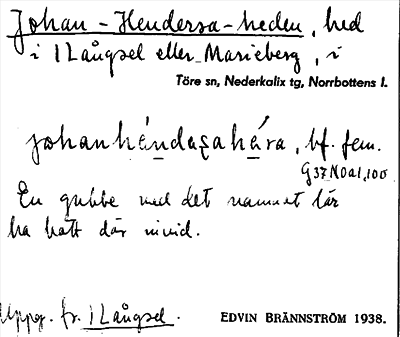 Johan-Hendersa-heden, hed
i 1 Långsel eller Marieberg, i
Töre sn, Nederkalix tg, Norrbottens l.
johanhǽndaṣahára, bf. fem.
G 37 N0a1,100
En gubbe med det namnet lär
ha hatt där invid.
Uppg. fr. 1 Långsel.
EDVIN BRÄNNSTRÖM 1938.